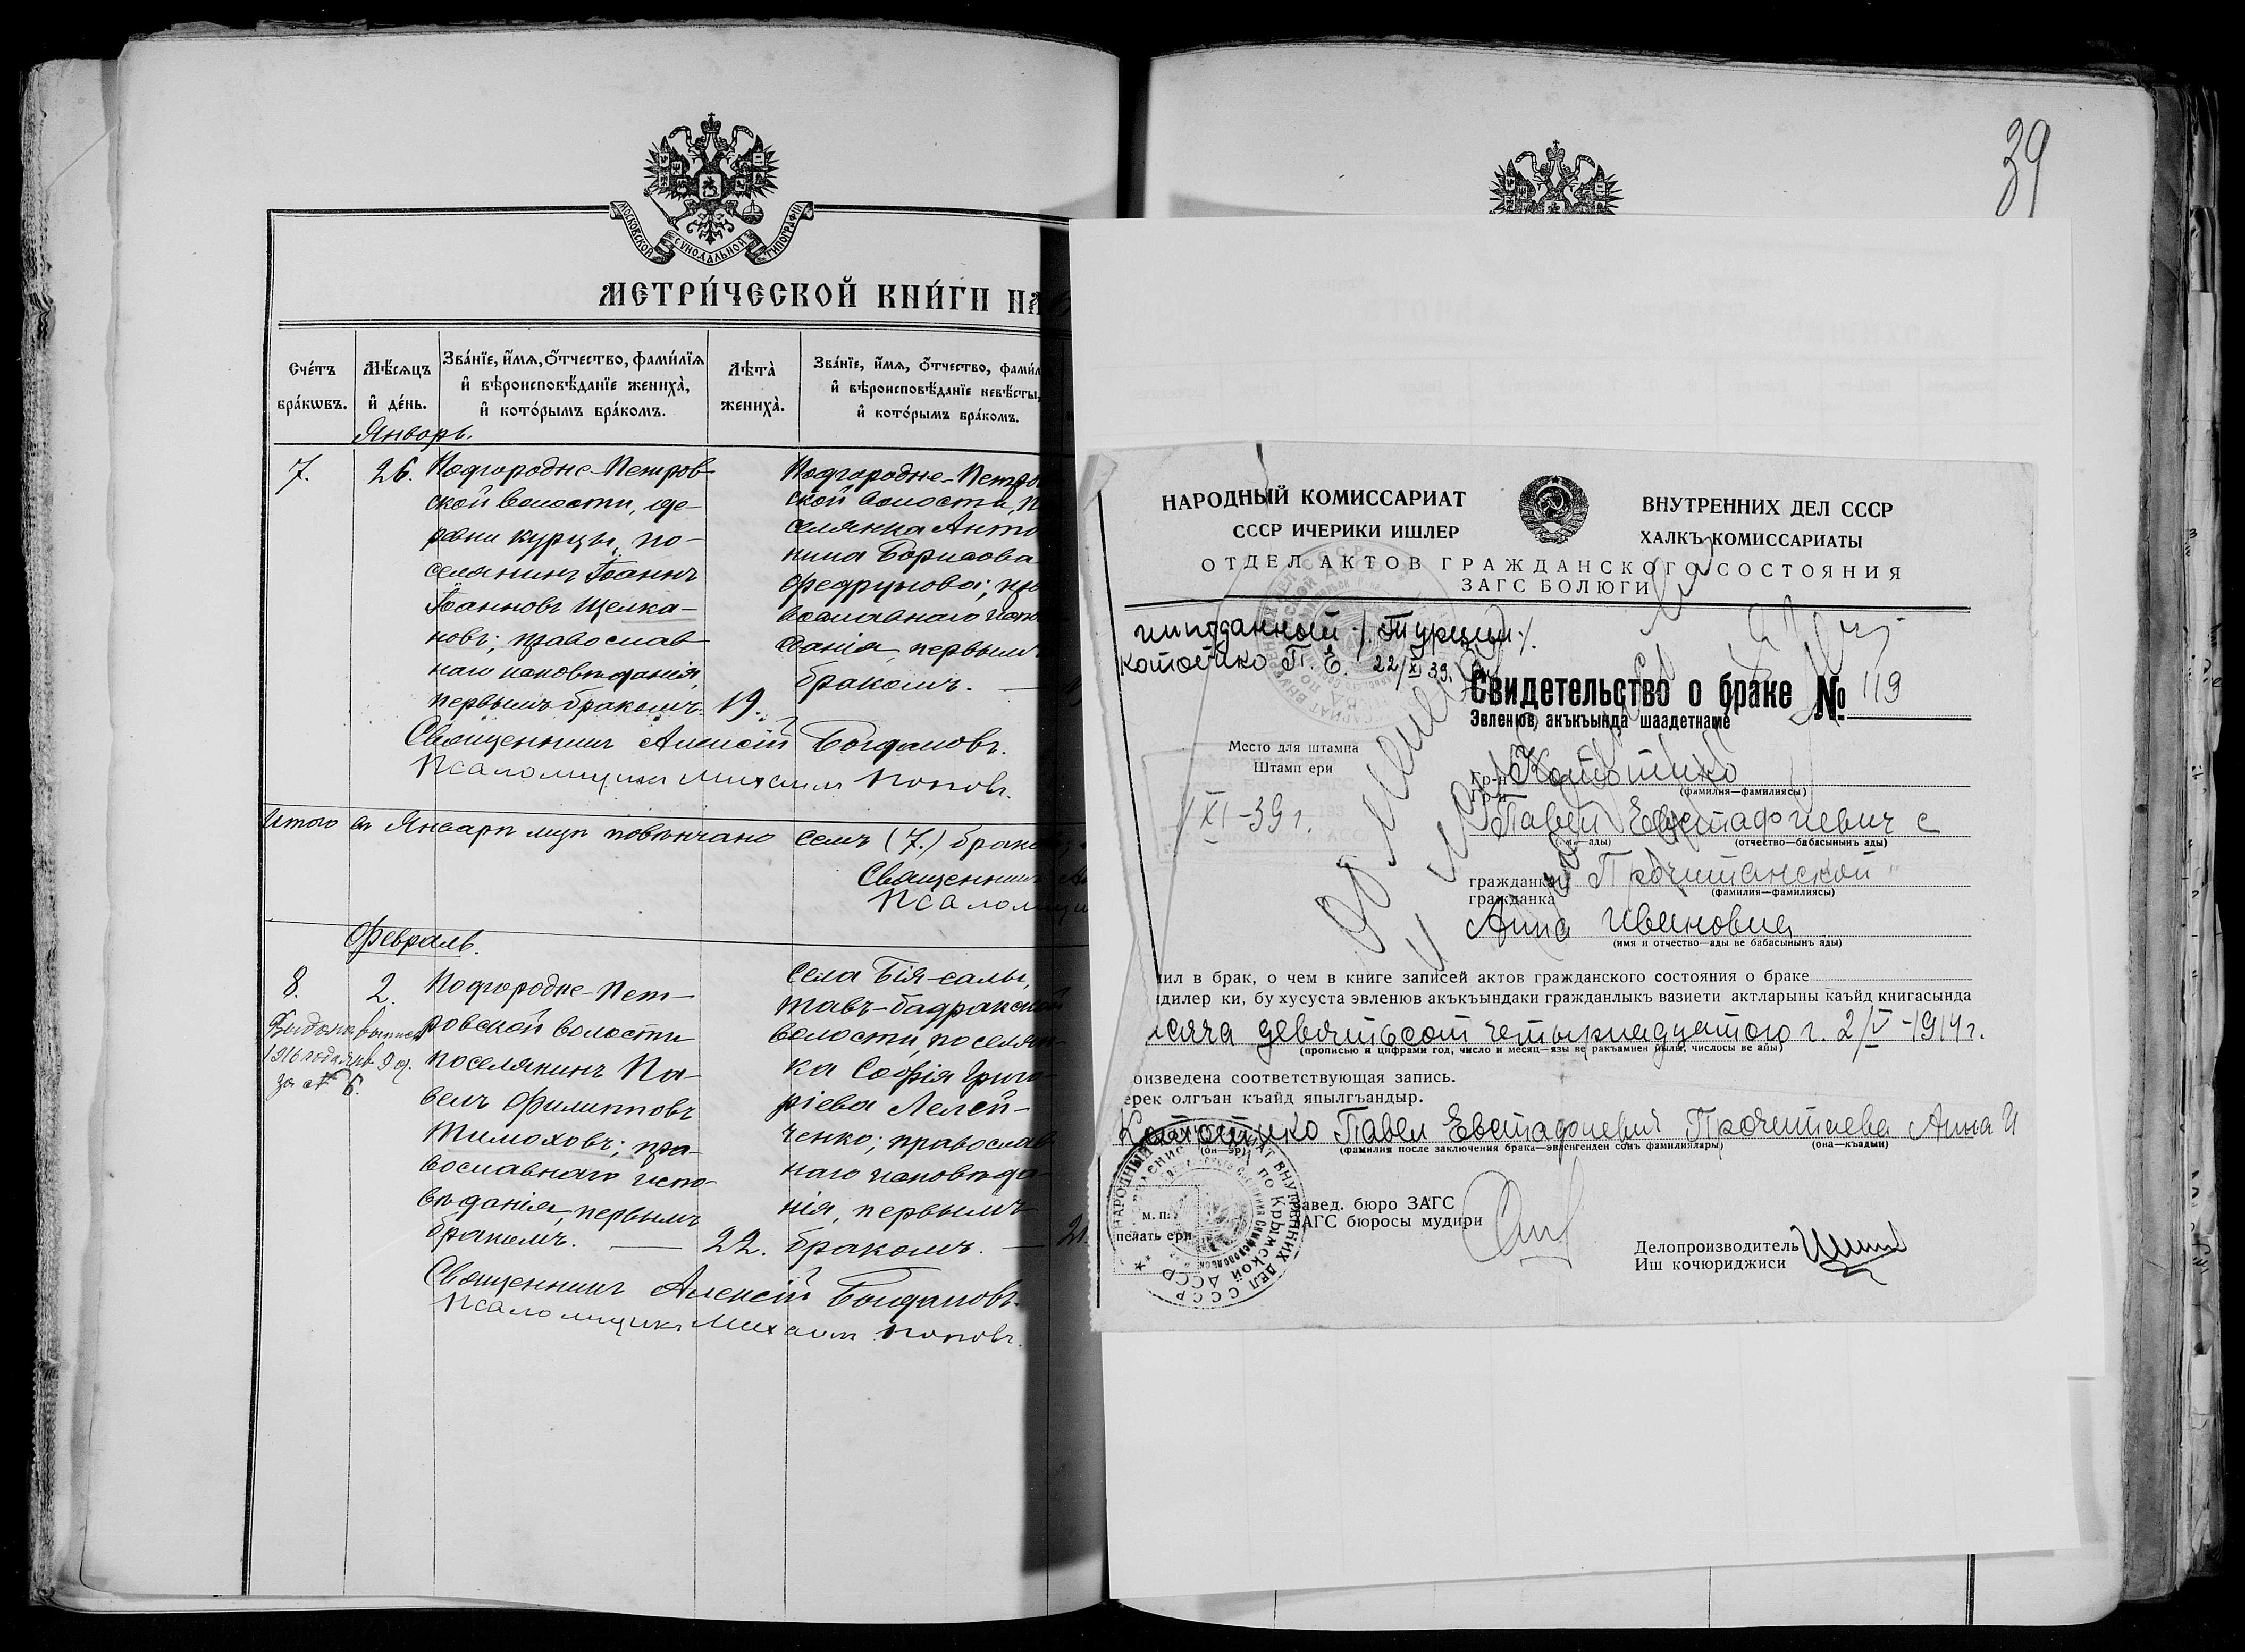 39
МОСКОВСКОЙ СѴНОДАЛЬНОЙ ТИПОГРАФІИ
МЕТРИ́ЧЕСКОЙ КНИ́ГИ НА
Сче́тъ бра́кѡвъ.
Мѣ́сяцъ и҆ де́нь.
Зва́нїе, и҆́мѧ, ѻ҆́тчество, фами́лїѧ
и҆ вѣроисповѣ́данїе жениха̀,
и҆ кото́рымъ бра́комъ.
Лѣта̀ жениха̀.
Зва́нїе, и҆́мѧ, ѻ҆́тчество, фами́л
и҆ вѣроисповѣ́данїе невѣ́сты,
и҆ кото́рымъ бра́комъ.
Январь.
7. 26. Подгородне-Петров-
ской волости, де-
ревни Курцы, по-
селянинъ Іоаннъ
Іоанновъ Щелка-
новъ; православ-
наго исповѣданія,
первымъ бракомъ. 19.
Подгородне-Петро
ской волости, п
селянка Анто
нина Борисова
Федрунова; пра
вославнаго испо
данія, первымъ
бракомъ. —
Священникъ Алексій Богдановъ.
Псаломщикъ Михаилъ Поповъ.
Итого въ Январѣ мцѣ повѣнчано семь (7.) брако
Священникъ
Псаломщи
Февраль.
8. 2. Подгородне-Пет-
ровской волости
поселянинъ Па-
велъ Филипповъ
Тимоховъ; пра-
вославнаго испо-
вѣданія, первымъ
бракомъ. — 22.
Села Бія-салы,
Тавъ-бадракской
волости, поселян-
ка Софія Григо-
ріева Лелей-
ченко; православ-
наго исповѣда-
нія, первымъ
бракомъ. — 21.
Выдана выпись
1916 года Янв. 9 д.
за № 6.
Священникъ Алексій Богдановъ.
Псаломщикъ Михаилъ Поповъ.
НАРОДНЫЙ КОМИССАРИАТ ВНУТРЕННИХ ДЕЛ СССР
СССР ИЧЕРИКИ ИШЛЕР ХАЛКЪ КОМИССАРИАТЫ
ОТДЕЛ АКТОВ ГРАЖДАНСКОГО СОСТОЯНИЯ
ЗАГС БОЛЮГИ
/. Турции /.
Т. Е. 22/XI 39.
Свидетельство о браке № 119
Эвленюв акъкъында шаадетнаме
Место для штампа
Штамп ери
XI-39 г.
Гр-н
Гр-н
(фамилия—фамилиясы)
Павел Евстафиевич с
(имя—ады) (отчество—бабасынынъ ады)
гражданкой
гражданка
(фамилия—фамилиясы)
Анна Ивановна
(имя и отчество—ады ве бабасынынъ ады)
ил в брак, о чем в книге записей актов гражданского состояния о браке
дилер ки, бу хусуста эвленюв акъкъындаки гражданлыкъ вазиети актларыны къайд книгасында
сяча девятьсот четырнадцатого г. 2/V-1914 г.
(прописью и цифрами год, число и месяц—язы ве ракъамнен йылы, числосы ве айы)
оизведена соответствующая запись.
ерек олгъан къайд япылгъандыр.
Павел Евстафиевич Анна И
(он—эр) (фамилия после заключения брака—эвленгенден сонъ фамилиялары) (она—къадын)
м. п.
печать ери
Завед. бюро ЗАГС
ЗАГС бюросы мудири
Делопроизводитель
Иш кочюриджиси